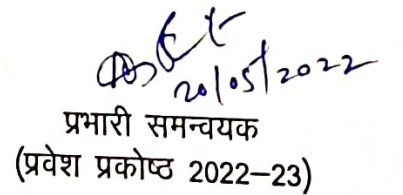 20/05/2022
प्रभारी समन्वयक
(प्रवेश प्रकोष्ठ 2022–23)